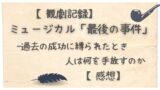 【 観劇記録 】
ミュージカル「最後の事件」
–過去の成功に縛られたとき
人は何を手放すのか
【 感想 】